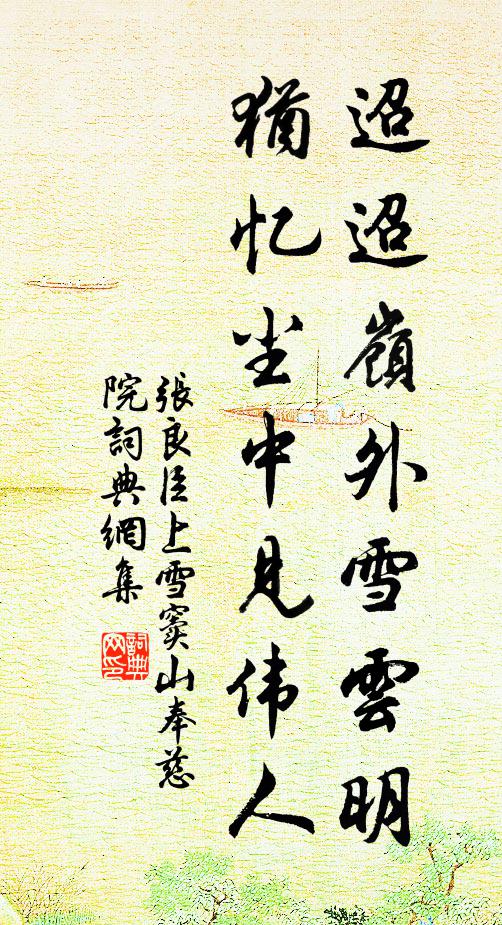 迢迢嶺外雪雲明
猶忆尘中見伟人
張良臣上雪窦山奉慈
院詞典網集
詞典网印